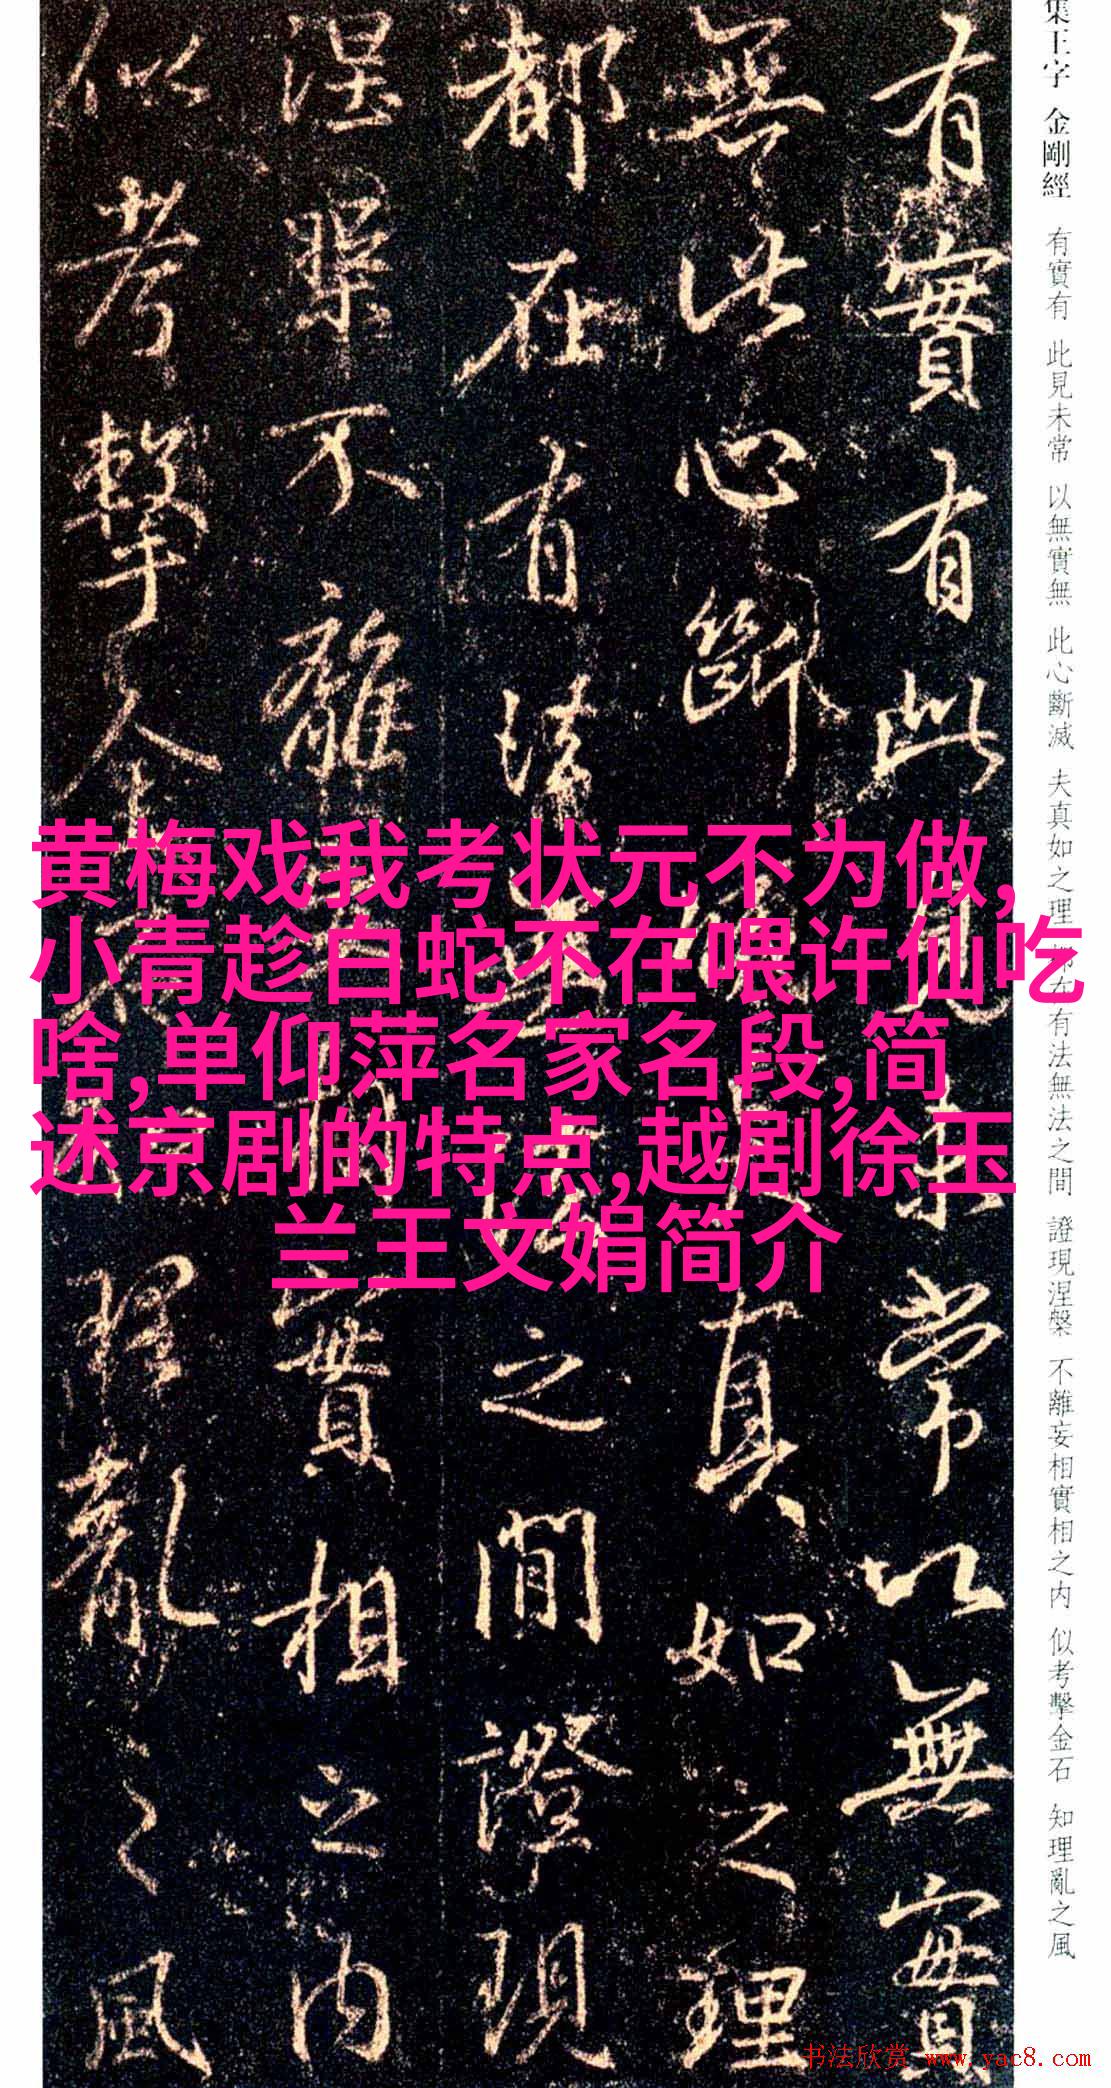 黄梅戏我考状元不为做,
小青趁白蛇不在喂许仙吃
啥,单仰萍名家名段,简
述京剧的特点,越剧徐玉
兰王文娟简介
集王字 金剛經 有實有 此見未常 以無實無 此心斷滅 夫真如之理 都在有法無法之間 證現涅槃 不離妄相實相之内 似考擊金石 知理亂之風
有實有此見未常以無實
無此心斷滅夫真如之理
都在有法無法之間證現
涅槃不離妄相實相之内
似考擊金石知理亂之風
书法欣赏 www.yac8.com